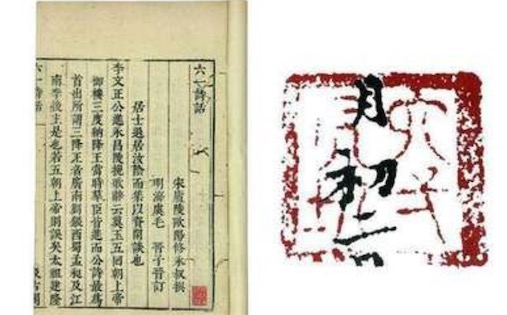 六一詩話
宋廬陵歐陽修永叔撰
明海虞毛 晉子晉訂
居士退居汝陰而集以資閒談也
李文正公進永昌陵挽歌辭云奠玉五回朝上帝
御樓三度納降王當時羣臣皆進而公詩最爲
首出所謂三降王者廣南劉鋹西蜀孟昶及江
南李後主是也若五朝上帝則誤矣太祖建隆
六一詩話
汲古閣
月初二